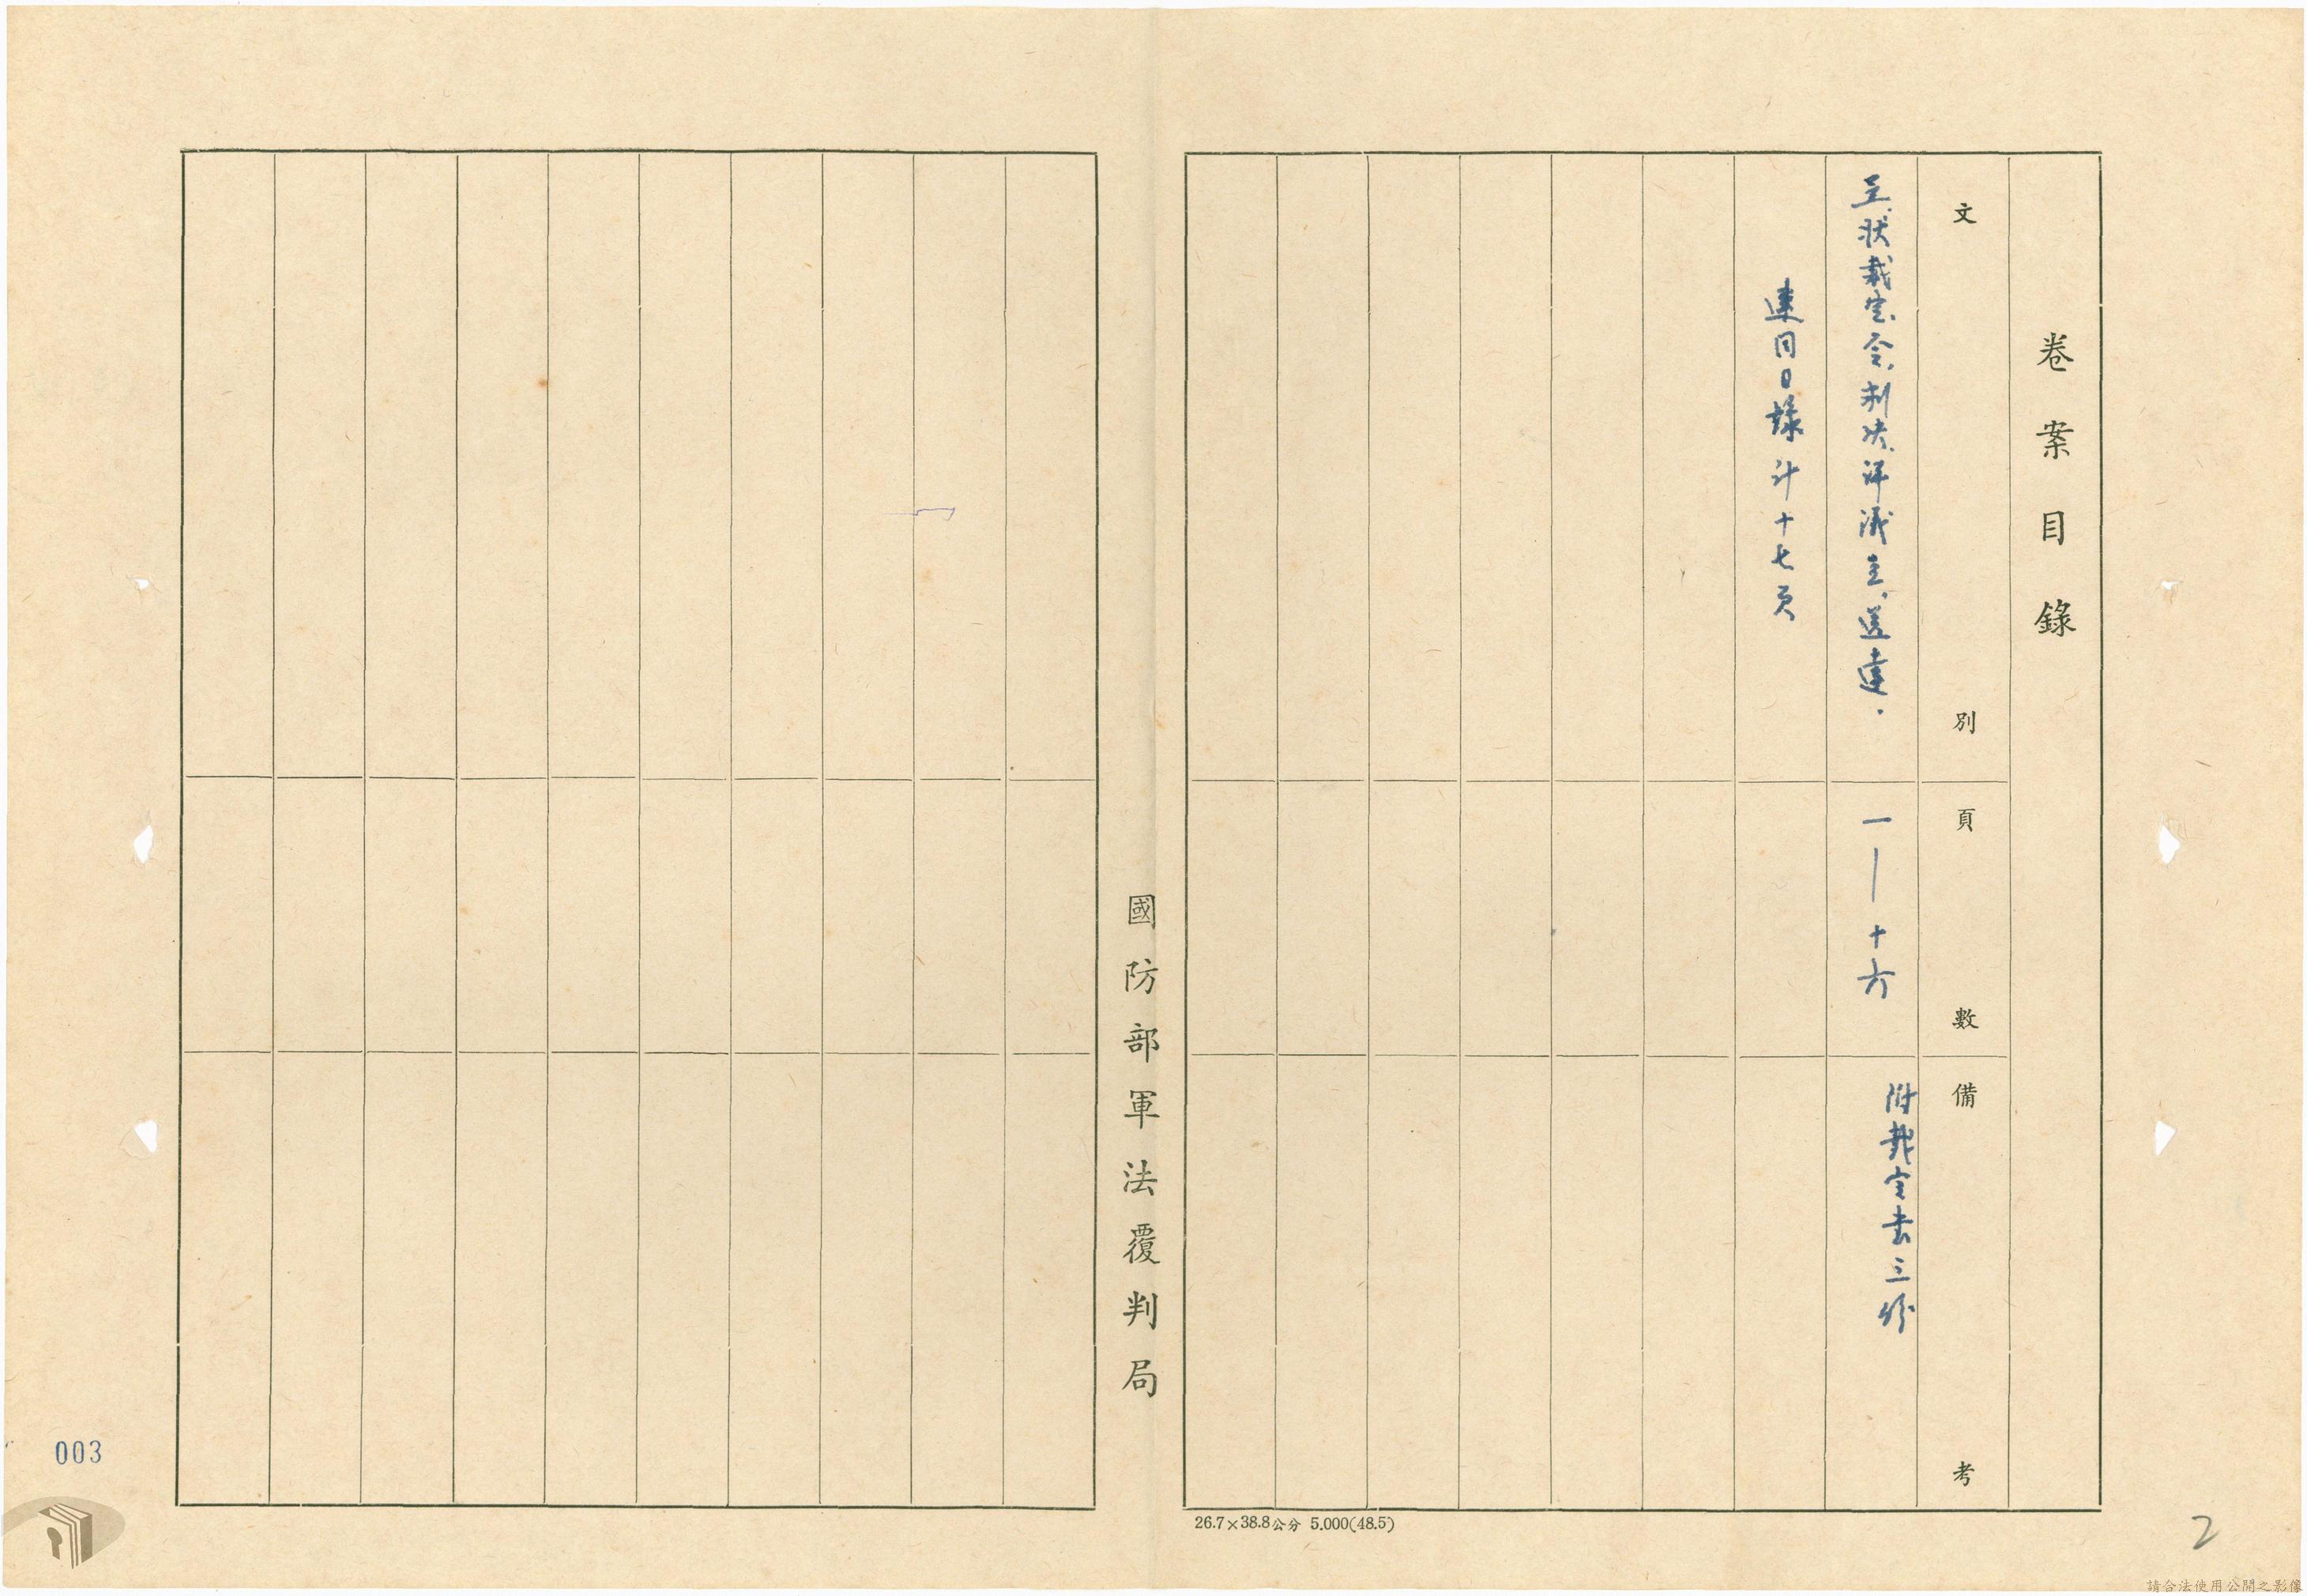 卷案目錄
文別
頁數
備考
呈、狀、裁定、令、判決、評議、送達．
一—十六
附裁定書三份
連同目錄計十七頁
國防部軍法覆判局
26.7×38.8公分 5.000(48.5)
003
2
請合法使用公開之影像